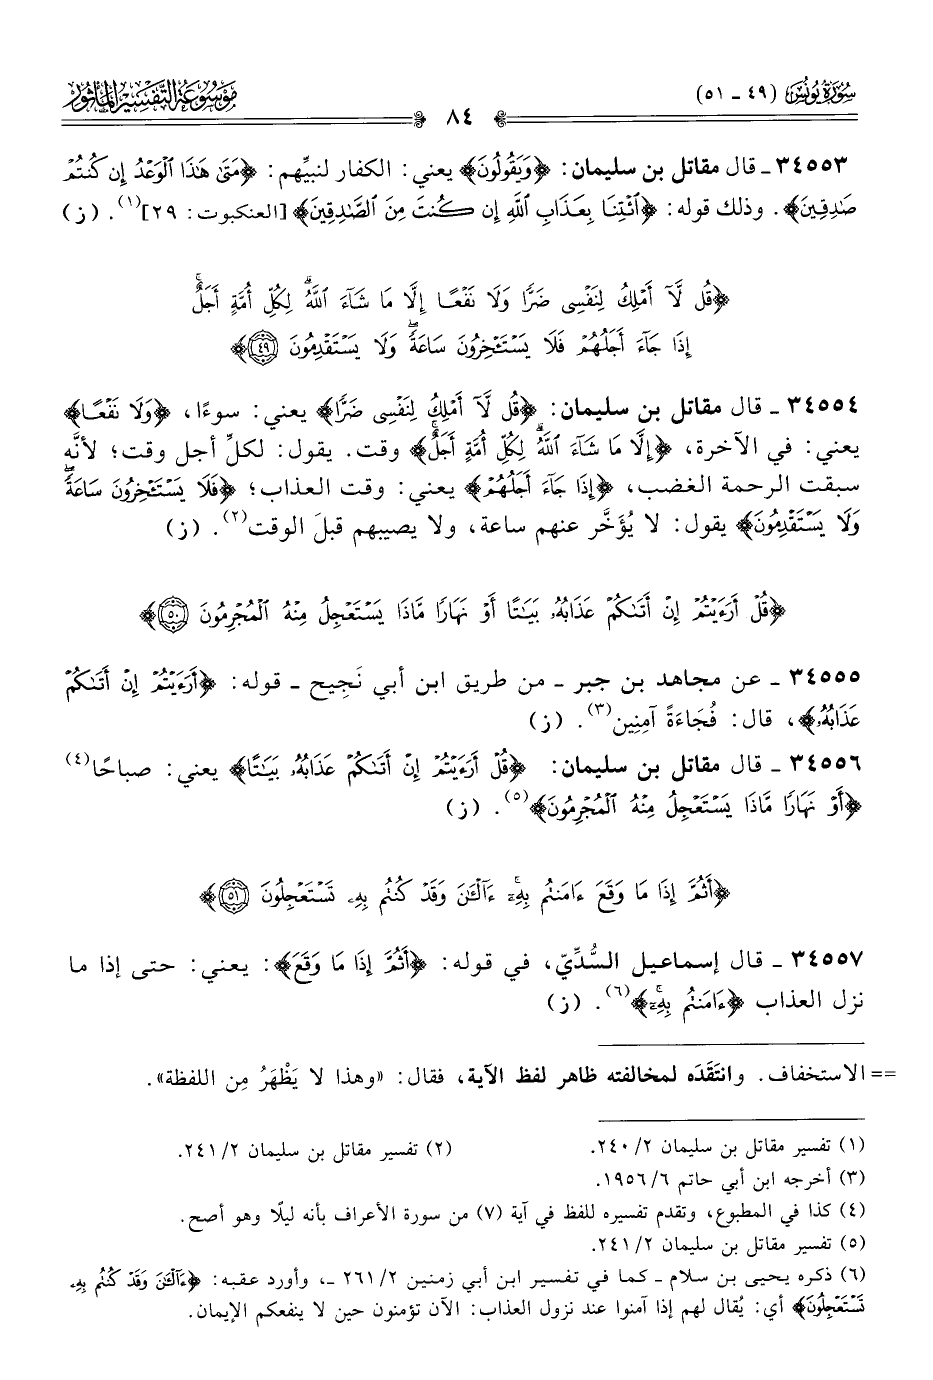 سُورَةُ يُونُسَ (٤٩ - ٥١)
٨٤
مَوْسُوعَةُ التَّفْسِيرِ المَأْثُورِ
٣٤٥٥٣ - قال مقاتل بن سليمان: ﴿وَيَقُولُونَ﴾ يعني: الكفار لنبيِّهم: ﴿مَتَىٰ هَٰذَا ٱلْوَعْدُ إِن كُنتُمْ
صَٰدِقِينَ﴾. وذلك قوله: ﴿ٱئْتِنَا بِعَذَابِ ٱللَّهِ إِن كُنتَ مِنَ ٱلصَّٰدِقِينَ﴾ [العنكبوت: ٢٩](١). (ز)
﴿قُل لَّآ أَمْلِكُ لِنَفْسِى ضَرًّا وَلَا نَفْعًا إِلَّا مَا شَآءَ ٱللَّهُ ۗ لِكُلِّ أُمَّةٍ أَجَلٌ ۚ
إِذَا جَآءَ أَجَلُهُمْ فَلَا يَسْتَـْٔخِرُونَ سَاعَةً ۖ وَلَا يَسْتَقْدِمُونَ ٤٩﴾
٣٤٥٥٤ - قال مقاتل بن سليمان: ﴿قُل لَّآ أَمْلِكُ لِنَفْسِى ضَرًّا﴾ يعني: سوءًا، ﴿وَلَا نَفْعًا﴾
يعني: في الآخرة، ﴿إِلَّا مَا شَآءَ ٱللَّهُ ۗ لِكُلِّ أُمَّةٍ أَجَلٌ ۚ﴾ وقت. يقول: لكلِّ أجل وقت؛ لأنَّه
سبقت الرحمة الغضب، ﴿إِذَا جَآءَ أَجَلُهُمْ﴾ يعني: وقت العذاب؛ ﴿فَلَا يَسْتَـْٔخِرُونَ سَاعَةً ۖ
وَلَا يَسْتَقْدِمُونَ﴾ يقول: لا يُؤَخَّر عنهم ساعة، ولا يصيبهم قبلَ الوقت(٢). (ز)
﴿قُلْ أَرَءَيْتُمْ إِنْ أَتَىٰكُمْ عَذَابُهُۥ بَيَٰتًا أَوْ نَهَارًا مَّاذَا يَسْتَعْجِلُ مِنْهُ ٱلْمُجْرِمُونَ ٥٠﴾
٣٤٥٥٥ - عن مجاهد بن جبر - من طريق ابن أبي نَجِيح - قوله: ﴿أَرَءَيْتُمْ إِنْ أَتَىٰكُمْ
عَذَابُهُۥ﴾، قال: فُجَاءَةً آمِنِين(٣). (ز)
٣٤٥٥٦ - قال مقاتل بن سليمان: ﴿قُلْ أَرَءَيْتُمْ إِنْ أَتَىٰكُمْ عَذَابُهُۥ بَيَٰتًا﴾ يعني: صباحًا(٤)
﴿أَوْ نَهَارًا مَّاذَا يَسْتَعْجِلُ مِنْهُ ٱلْمُجْرِمُونَ﴾(٥). (ز)
﴿أَثُمَّ إِذَا مَا وَقَعَ ءَامَنتُم بِهِۦٓ ۚ ءَآلْـَٰٔنَ وَقَدْ كُنتُم بِهِۦ تَسْتَعْجِلُونَ ٥١﴾
٣٤٥٥٧ - قال إسماعيل السُّدِّيّ، في قوله: ﴿أَثُمَّ إِذَا مَا وَقَعَ﴾: يعني: حتى إذا ما
نزل العذاب ﴿ءَامَنتُم بِهِۦٓ ۚ﴾(٦). (ز)
== الاستخفاف. وانتَقَدَه لمخالفته ظاهر لفظ الآية، فقال: «وهذا لا يَظْهَرُ مِن اللفظة».
(١) تفسير مقاتل بن سليمان ٢/ ٢٤٠. (٢) تفسير مقاتل بن سليمان ٢/ ٢٤١.
(٣) أخرجه ابن أبي حاتم ٦/ ١٩٥٦.
(٤) كذا في المطبوع، وتقدم تفسيره للفظ في آية (٧) من سورة الأعراف بأنه ليلًا وهو أصح.
(٥) تفسير مقاتل بن سليمان ٢/ ٢٤١.
(٦) ذكره يحيى بن سلام - كما في تفسير ابن أبي زمنين ٢/ ٢٦١ -، وأورد عقبه: ﴿ءَآلْـَٰٔنَ وَقَدْ كُنتُم بِهِۦ
تَسْتَعْجِلُونَ﴾ أي: يُقال لهم إذا آمنوا عند نزول العذاب: الآن تؤمنون حين لا ينفعكم الإيمان.